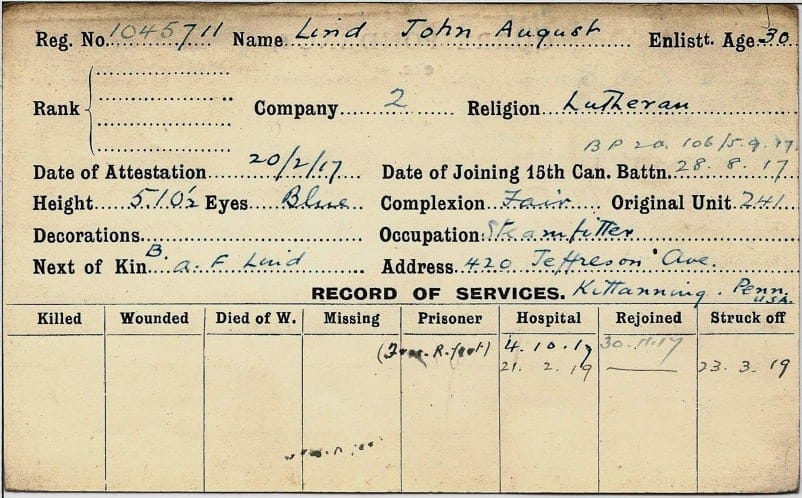 Reg. No. 1045711 Name Lind John August Enlistt. Age 30
Rank Company 2 Religion Lutheran
B P 20. 106/5.9.17.
Date of Attestation 20/2/17 Date of Joining 15th Can. Battn. 28.8.17
Height 5.10½ Eyes Blue Complexion Fair Original Unit 241
Decorations Occupation Steamfitter
Next of Kin B. A. F Lind Address 420 Jeffreson Ave.
RECORD OF SERVICES. Kittanning. Penn. USA.
Killed Wounded Died of W. Missing Prisoner Hospital Rejoined Struck off
R. foot) 4.10.17 30.11.17
21.2.19 — 23.3.19